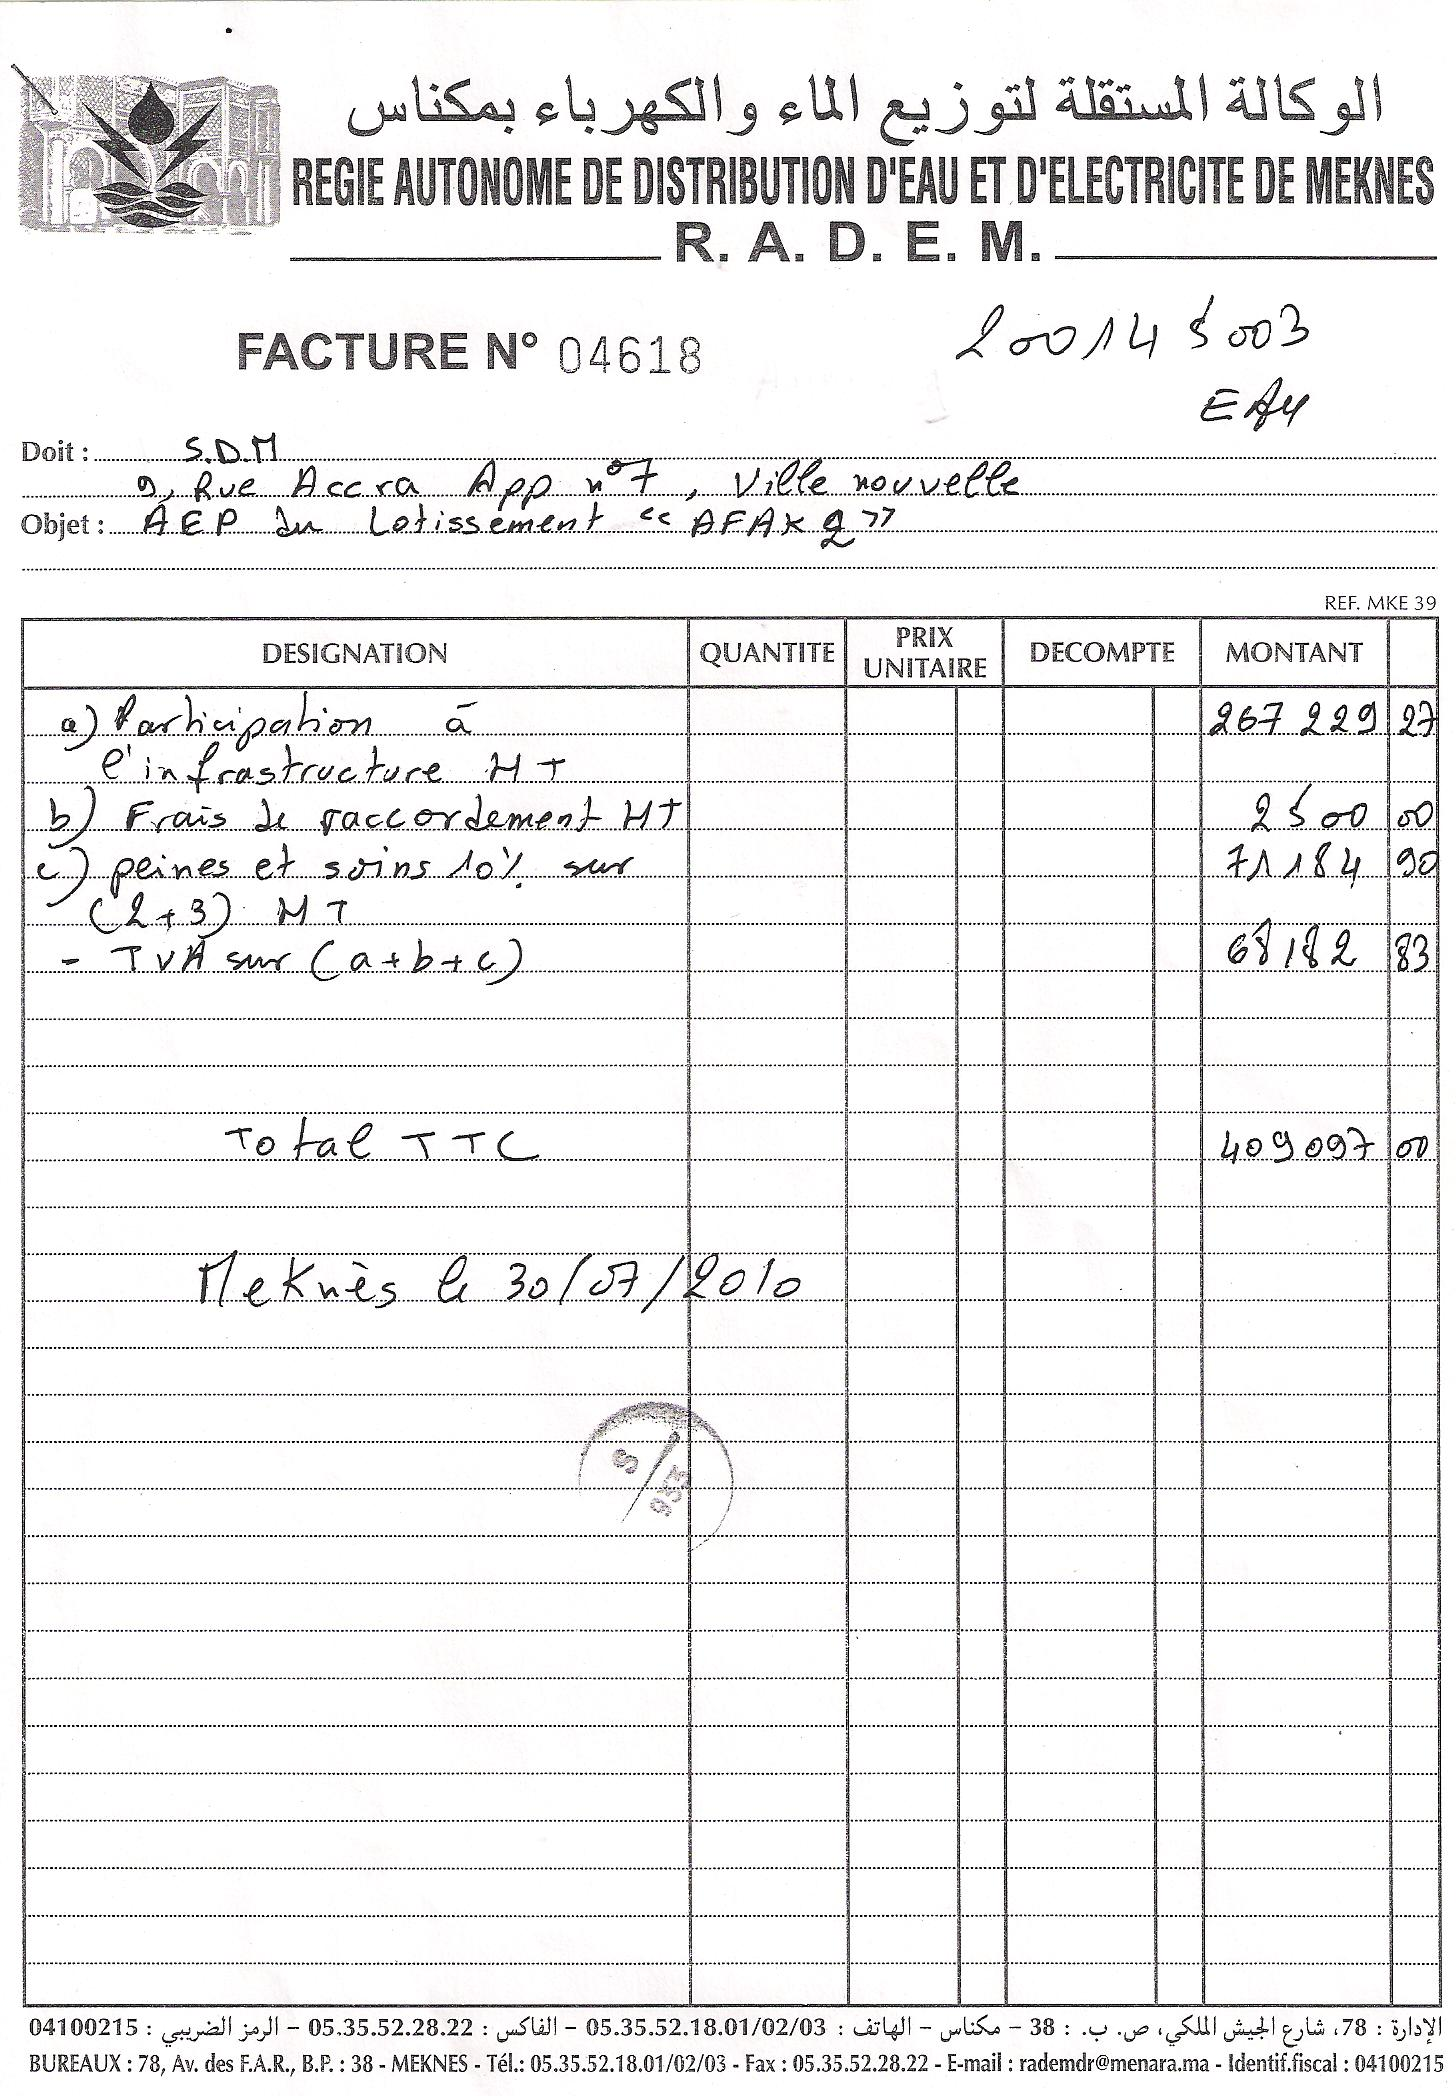 الوكالة المستقلة لتوزيع الماء والكهرباء بمكناس
REGIE AUTONOME DE DISTRIBUTION D'EAU ET D'ELECTRICITE DE MEKNES
R. A. D. E. M.
FACTURE N° 04618
200145003
EAU
Doit : S.D.M
9, Rue Accra App n°7, Ville nouvelle
Objet : AEP du Lotissement "AFAK 2"
REF. MKE 39
DESIGNATION QUANTITE PRIX UNITAIRE DECOMPTE MONTANT
a) Participation à 267 229 27
l'infrastructure HT
b) Frais de raccordement HT 2500 00
c) peines et soins 10% sur 71184 90
(2+3) HT
- TVA sur (a+b+c) 68182 83
Total TTC 409097 00
Meknès le 30/07/2010
S/933
الإدارة : 78، شارع الجيش الملكي، ص. ب. : 38 – مكناس – الهاتف : 05.35.52.18.01/02/03 – الفاكس : 05.35.52.28.22 – الرمز الضريبي : 04100215
BUREAUX : 78, Av. des F.A.R., B.P. : 38 - MEKNES - Tél.: 05.35.52.18.01/02/03 - Fax : 05.35.52.28.22 - E-mail : rademdr@menara.ma - Identif.fiscal : 04100215